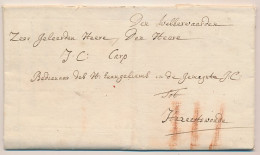 Den Welleerwaarden
Zeer Geleerden Heere, Den Heere
J. C. Carp
Bedienaar des H: Euangeliums in de Gemeente J. C.
Tot